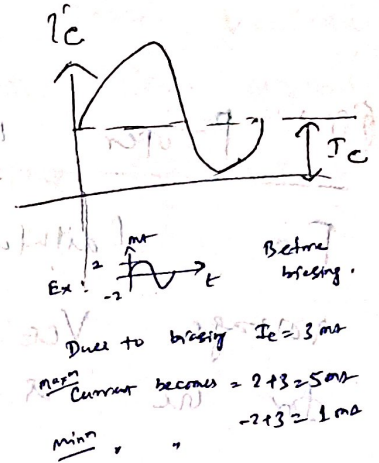 i'c
Ic
mA
2
Ex :
-2
t
Before
biasing.
Due to biasing Ic = 3 mA
maxm Current becomes = 2+3=5mA
minm " " -2+3=1 mA